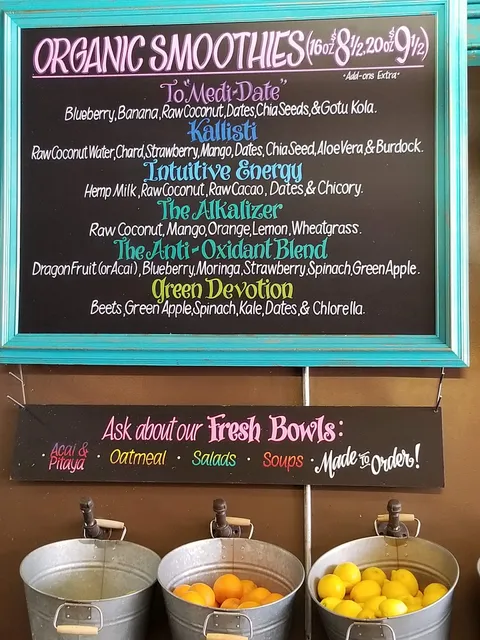 ORGANIC SMOOTHIES (16oz $8 1/2, 20oz $9 1/2)
*Add-ons Extra*
To "Medi-Date"
Blueberry, Banana, Raw Coconut, Dates, Chia Seeds, & Gotu Kola.
Kallisti
Raw Coconut Water, Chard, Strawberry, Mango, Dates, Chia Seed, Aloe Vera, & Burdock.
Intuitive Energy
Hemp Milk, Raw Coconut, Raw Cacao, Dates, & Chicory.
The Alkalizer
Raw Coconut, Mango, Orange, Lemon, Wheatgrass.
The Anti-Oxidant Blend
Dragon Fruit (or Acai), Blueberry, Moringa, Strawberry, Spinach, Green Apple.
Green Devotion
Beets, Green Apple, Spinach, Kale, Dates, & Chlorella.
Ask about our Fresh Bowls:
Acai & Pitaya · Oatmeal · Salads · Soups · Made to Order!